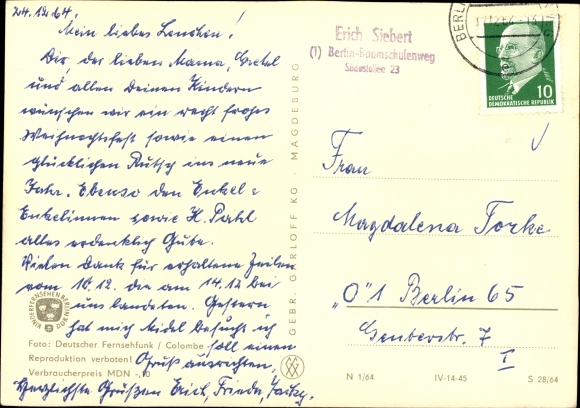 24.12.64.
Mein liebes Lenchen!
Dir der lieben Mama, Gretel
und allen Deinen Kindern
wünschen wir ein recht frohes
Weihnachtsfest sowie einen
glücklichen Rutsch ins neue
Jahr. Ebenso den Enkel=
Enkelinnen sowie H. Pahl
alles erdenklich Gute.
Vielen Dank für erhaltene Zeilen
vom 10.12. die am 14.12 bei
uns landeten. Gestern
hat mich Heidel besucht ich
soll einen
Gruß ausrichten,
Herzlichste Grüßen Erich, Frieda,
KINDERFERNSEHEN BERLIN
Foto: Deutscher Fernsehfunk / Colombe
Reproduktion verboten!
Verbraucherpreis MDN -,10
GEBR. GARLOFF KG · MAGDEBURG
Erich Siebert
(1) Berlin-Baumschulenweg
23
BERLIN
DEUTSCHE
DEMOKRATISCHE REPUBLIK
10
Frau
Magdalena Torke
"O" 1 Berlin 65
Genterstr. 7
I
N 1/64 IV-14-45 S 28/64